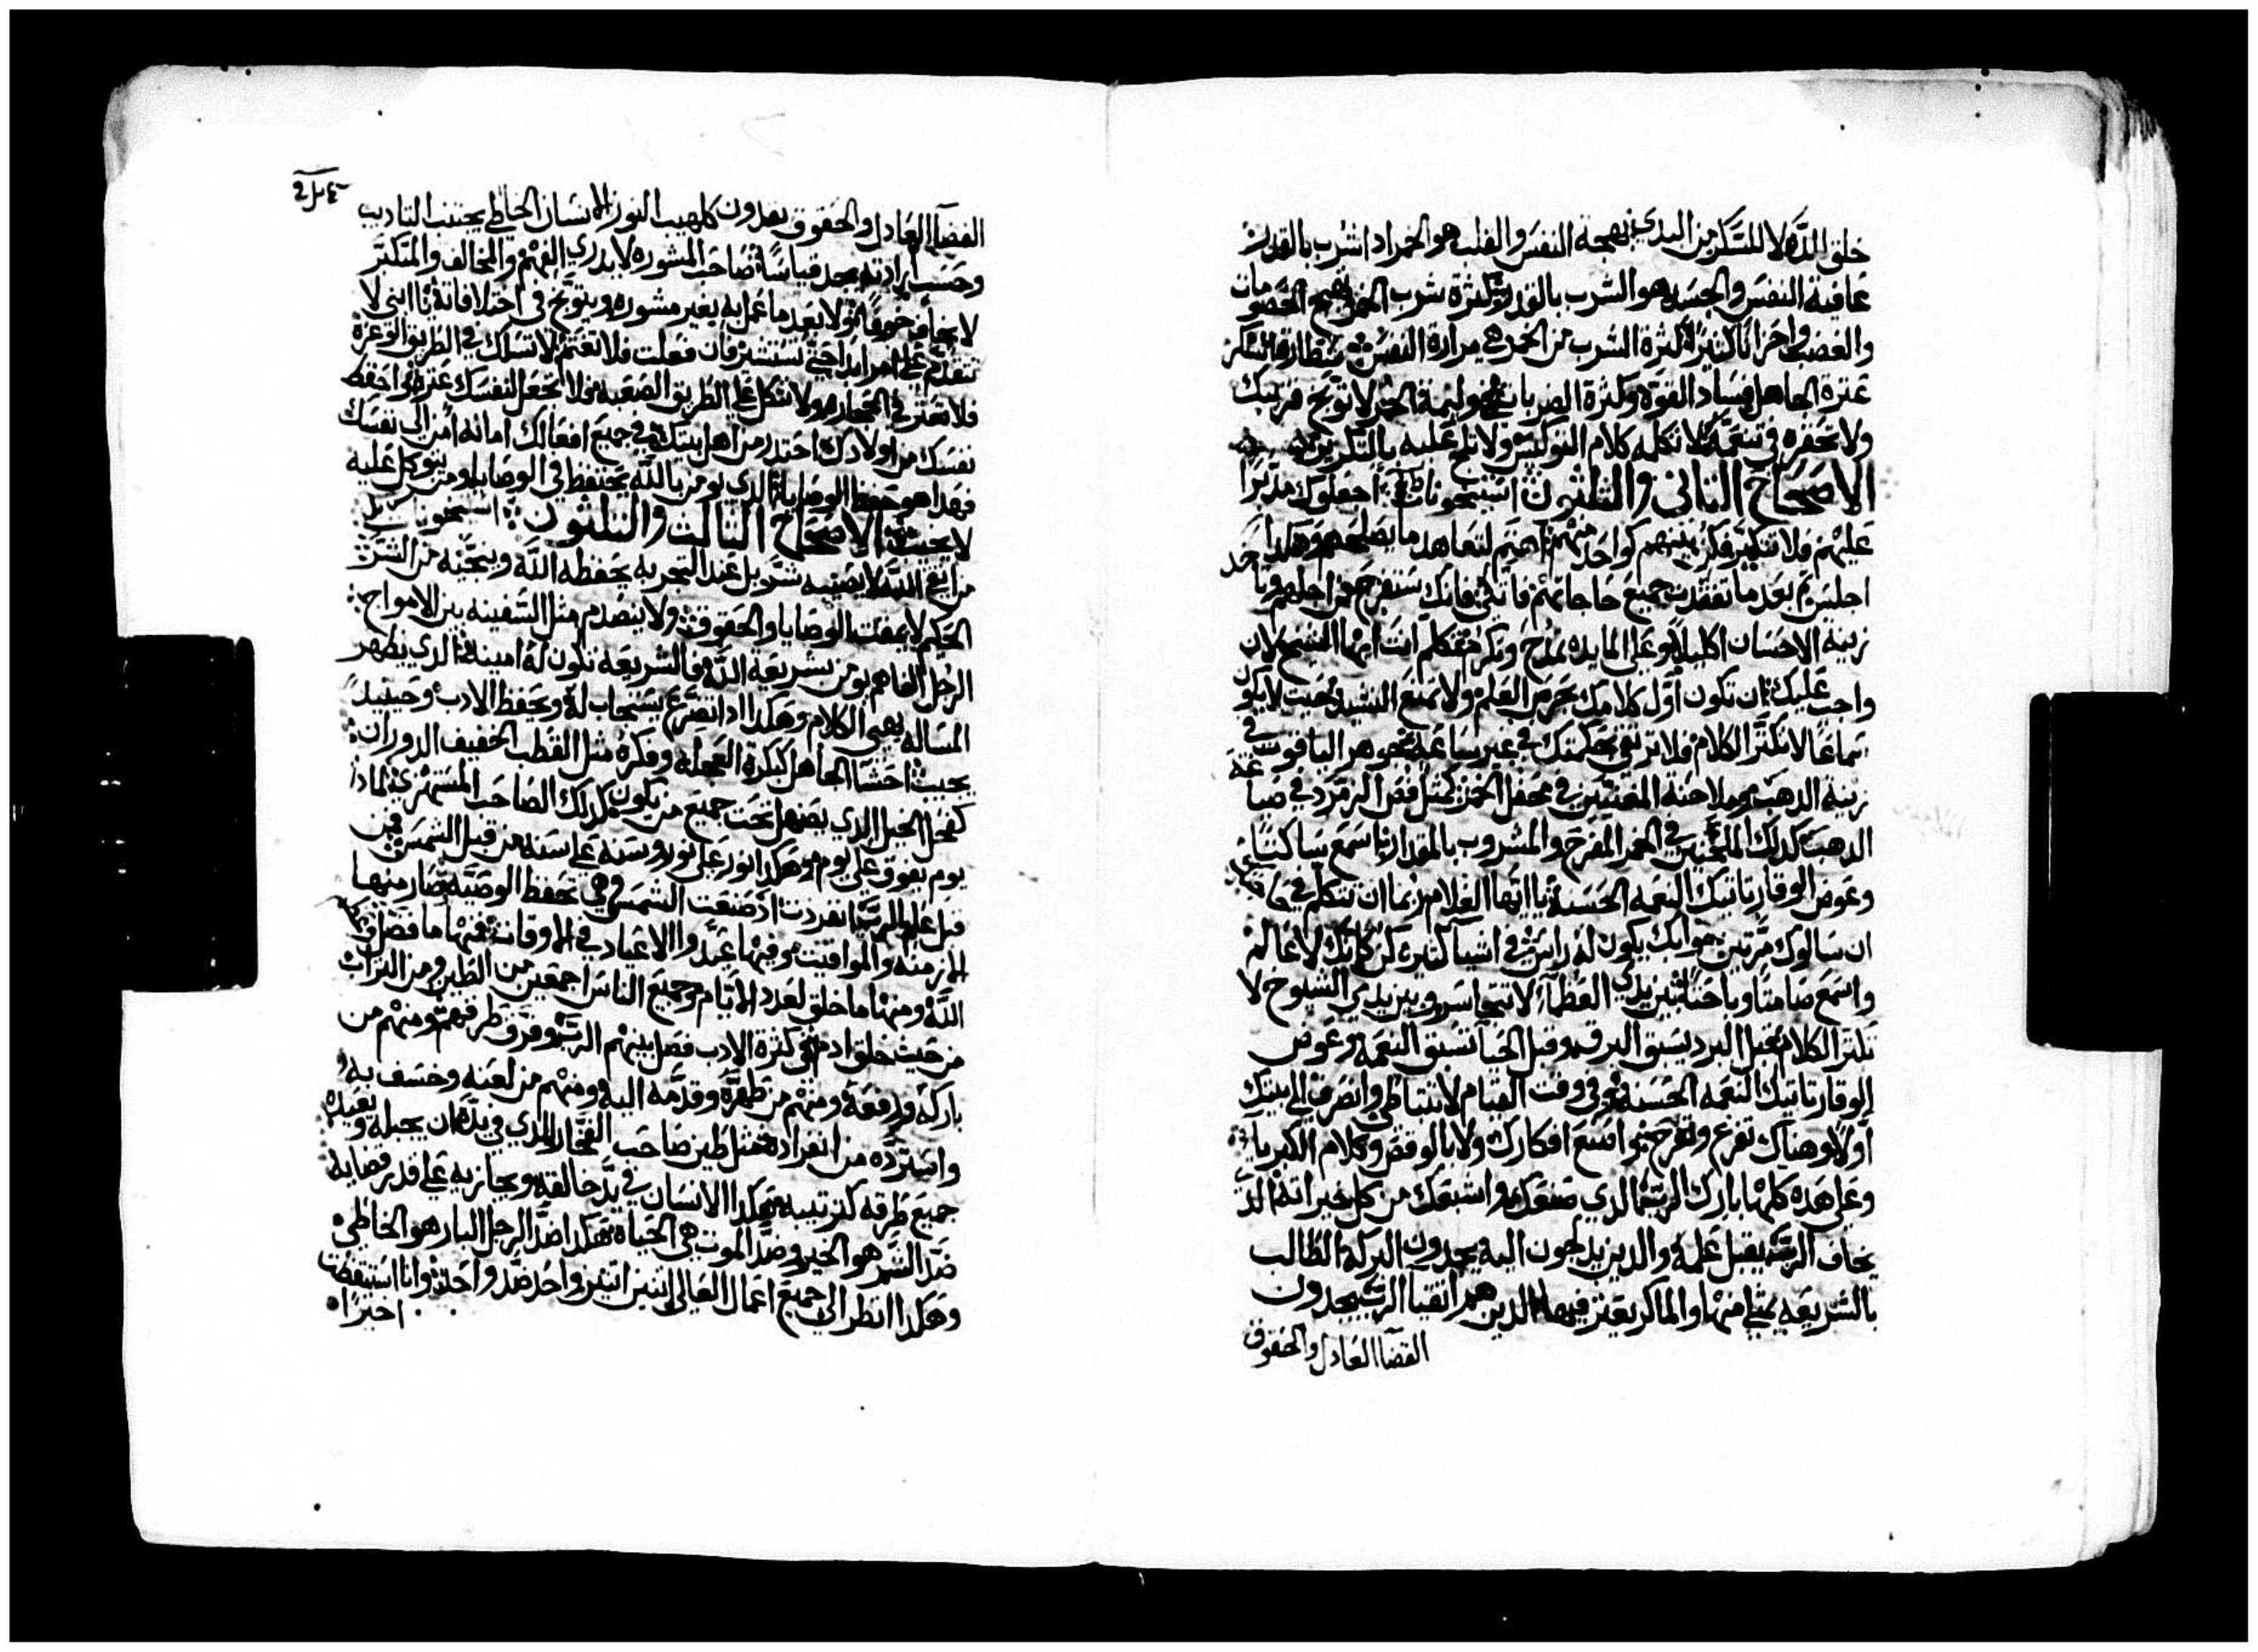 خلق للذه لا للسكر من البدي بهجة النفس والقلب هو الخمر اذا شرب بالقدر
عافية النفس والجسد هو الشرب بالقدر كثرة شرب الخمر يهيج الخصومات
والغضب واحزانا كثيرا كثرة الشرب من الخمر هي مرارة النفس شطارة السكر
عثرة الجاهل فساد القوة وكثرة الضربات في وليمة الخمر لا توبخ قريبك
ولا تحقره في تنعمه لا تكلمه كلام التوكيس ولا تلح عليه بالتكرير
الاصحاح الثاني والثلثون استيحونات اجعلوك مدبرا
عليهم فلا تتكبر فكن بينهم كواحد منهم اهتم لتعاهد ما يصلحهم وهكذا
اجلس ثم بعد ما تفقدت جميع حاجاتهم فاتكئ فانك ستفرح من اجلهم وتاخد
زينه الاحسان اكليلا وعلى المايده تمدح وتكرم تكلم انت ايها الشيخ لان
واجب عليك ان تكون اول كلامك بحرص العلم ولا تمنع النشيد حيث لا يكون
سماعا لا تكثر الكلام ولا ترتفع بحكمتك في غير ساعه جوهر الياقوت في
زينه الذهب وملاحنة المغنيين في محفل الخمر كمثل فص الزمرد في صياغة
الذهب كدلك الملحنين في الخمر المفرح والمشروب بالمقدار اسمع ساكتا
وعوض الوقار تاتيك النعمه الحسنة يا ايها الغلام ربما ان تتكلم في حاجتك
ان سالوك مرتين جوابك يكون له راس في اشيآ كثيره كن كانك لا عالم
واسمع صامتا وباحثا بين يدي العظمآ لا تتجاسر وبين يدي الشيوخ لا
تكثر الكلام قبل البرد يسبق البرق وقبل الحيا تسبق النعمه وعوض
الوقار تاتيك النعمه الحسنة وفي وقت القيام لا تتباطى وانصرف الى بيتك
اولا وهناك تفرغ وتفرح واصنع افكارك ولا بالوفض وكلام الكبريا
وعلى هذه كلها بارك الرب الذي صنعك واشبعك من كل خيراته الذي
يخاف الرب يقبل علمه والذين يدلجون اليه يجدون البركة الطالب
بالشريعه يمتلي منها والماكر يعثر فيها الذين هم اتقيا الرب يجدون
القضآ العادل والحقوق
القضآ العادل والحقوق يقدون كلهيب النور الانسان الخاطي يجتنب التاديب
وحسب ارادته يجد قياسا صاحب المشوره لا يدري الفهم والمخالف والمتكبر
لا يخاف خوفا ولا بعد ما عمل به بغير مشوره ويتوبخ في اختلافاته يا ابني لا
تتقدم على امر ابدا حتى تستشير فان فعلت فلا تغتم لا تسلك في الطريق الوعرة
فلا تعثر في الحجاره ولا تتكل على الطريق الصعبه ولا تجعل لنفسك عثره واحفظ
نفسك من اولادك احتذر من اهل بيتك في جميع افعالك امانه امن الى نفسك
فهذا هو حفظ الوصايا الذي يومن بالله يحتفظ في الوصايا ومن يتوكل عليه
لا يخيب الاصحاح الثالث والثلثون استيحو
من اتقى الله لا يصيبه شر بل عند التجربه يحفظه الله وينجيه من الشر
الحكيم لا يمقت الوصايا والحقوق ولا ينصدم مثل السفينه بين الامواج
الرجل الفاهم يومن بشريعة الله والشريعه تكون له امينه الذي يظهر
المساله يهيي الكلام وهكذا اذا تضرع يستجاب له ويحفظ الادب وحينيد
يجيب احشا الجاهل كبكرة العجله وفكره مثل القطب الخفيف الدوران
كفحل الخيل الذي يصهل تحت جميع من يكون كذلك الصاحب المستهزي لماذا
يوم يفوق على يوم وهكذا نور على نور وسنه على سنه من قبل الشمس من
قبل علم الرب انفردت اذ صنعت الشمس وهي تحفظ الوصيه صار منها
الازمنه والمواقيت وفيها عيدوا الاعياد في الاوقات فمنها ما فضل
الله ومنها ما خلق لعدد الايام وجميع الناس اجمعين من الطين ومن التراب
من حيث خلق ادم في كثرة الادب فصل بينهم الرب وفرق طرقهم ومنهم من
باركه ورفعه ومنهم من طهره وقدمه اليه ومنهم من لعنه وخسف به
واسترده من انفراده مثل طين صاحب الفخار الذي في يده ان يجبله ويعيده
جميع طرقه كترتيبه هكذا الانسان في يد خالقه ويجازيه على قدر قضايه
ضد الشر هو الخير وضد الموت هي الحياه هكذا ضد الرجل البار هو الخاطي
وهكذا انظر الى جميع اعمال العالي اثنين اثنين واحد ضد واحد وانا استيقظت
اخيرا